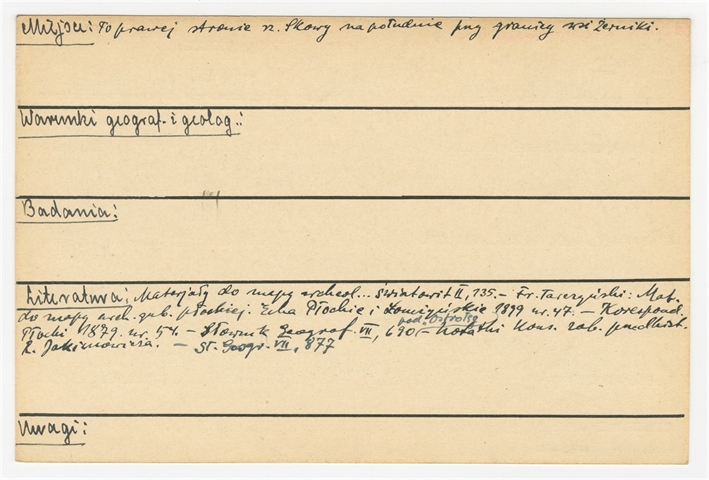 Miejsce: Po prawej stronie rz. Skowy na południe przy granicy wsi Żerniki.
Warunki geograf. i geolog.:
Badania:
Literatura: Materjały do mapy archeol... Światowit II, 135. – Fr. Tarczyński: Mat.
do mapy arch. gub. płockiej. Echa Płockie i Łomżyńskie 1899 nr. 47. – Korespond.
pod
Płocki 1879. nr. 54. – Słownik Geograf. VII, 690 – Notatki Kons. zab. przedhist.
R. Jakimowicza. – Sł. Geogr. VII, 877
Uwagi: